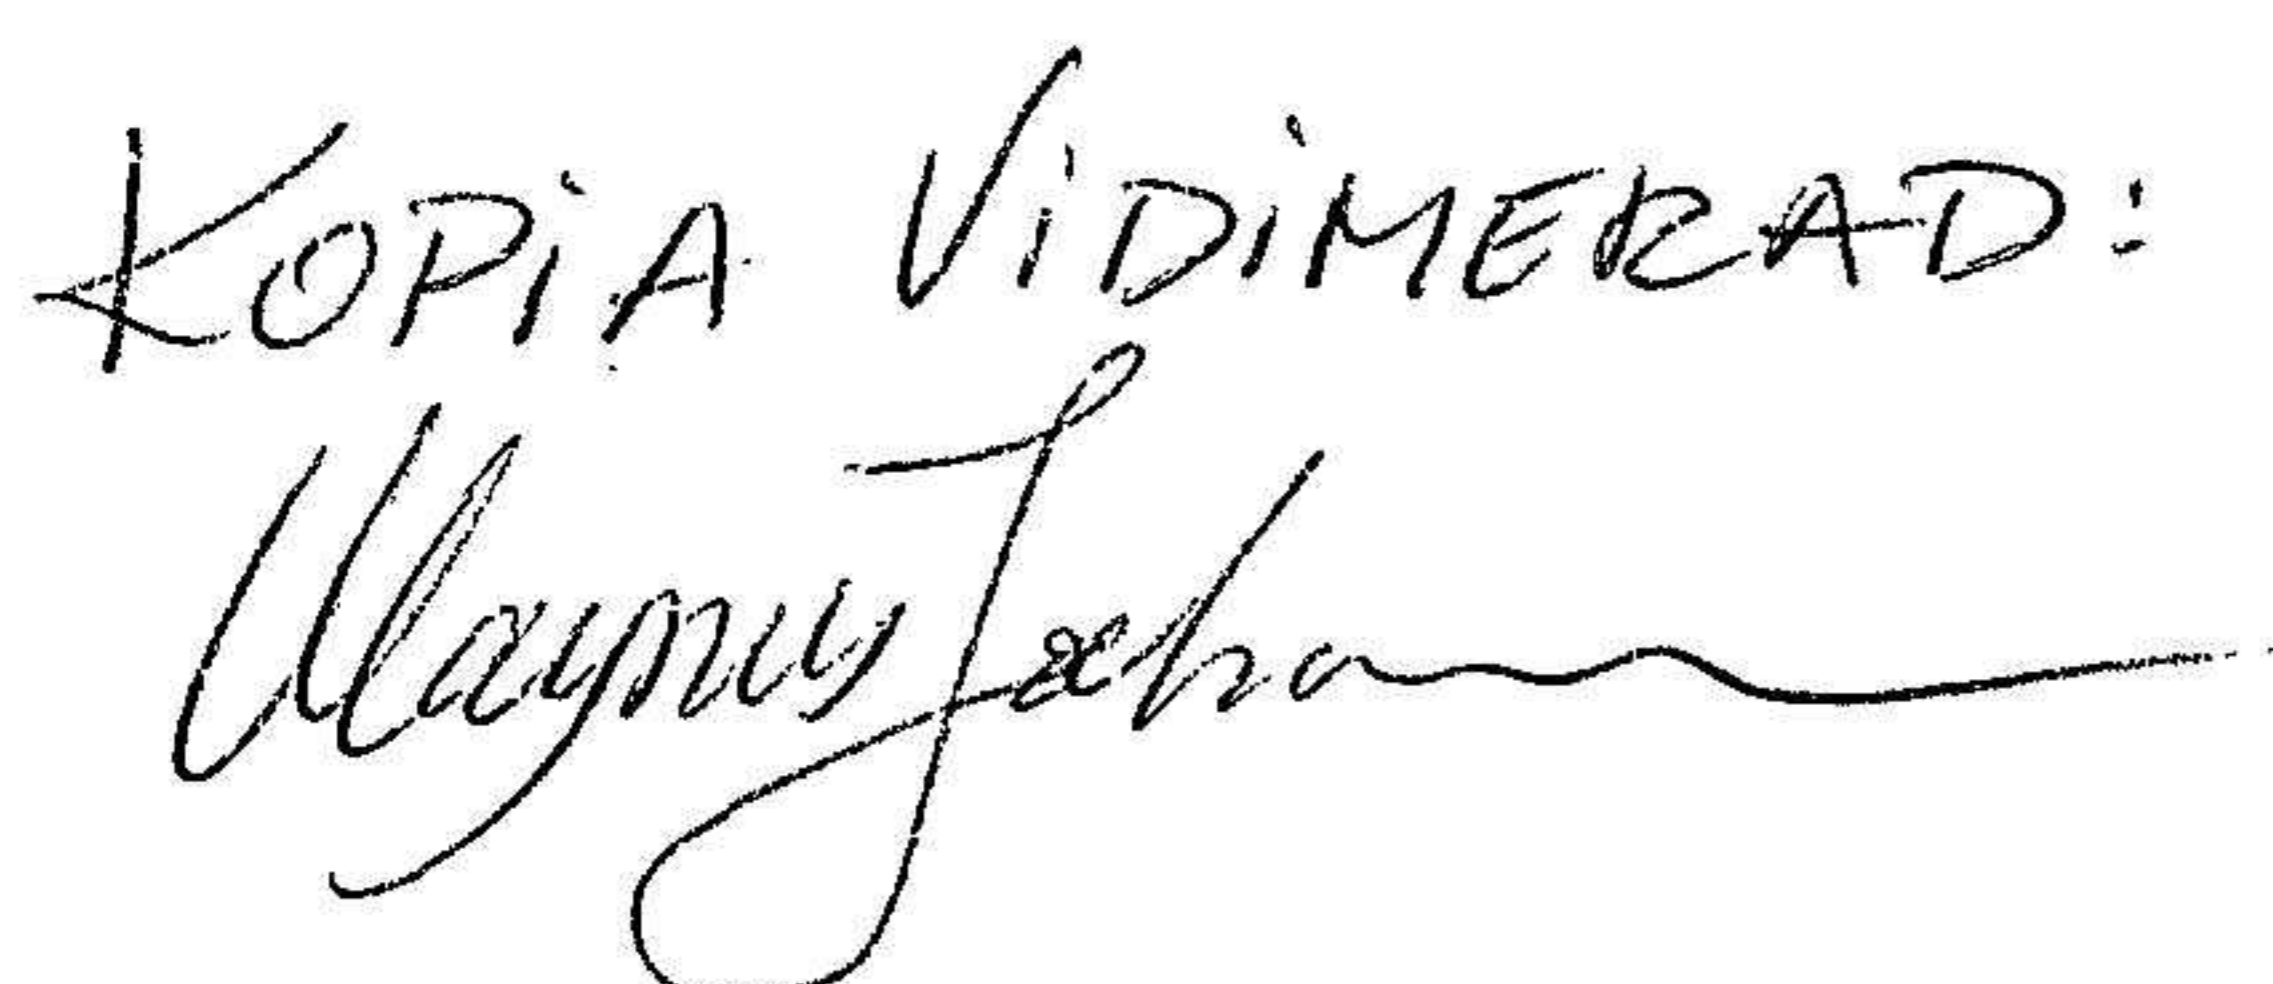 KOPIA VIDIMERAD:
Magnus